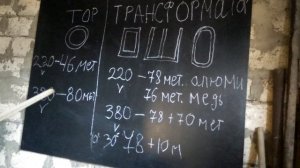 ТОР
ТРАНСФОРМАТО
220-46 мет
v
380-80 мет
v
220-78 мет. алюми
v 76 мет. медь
380-78+70 мет
v
30 78+10м